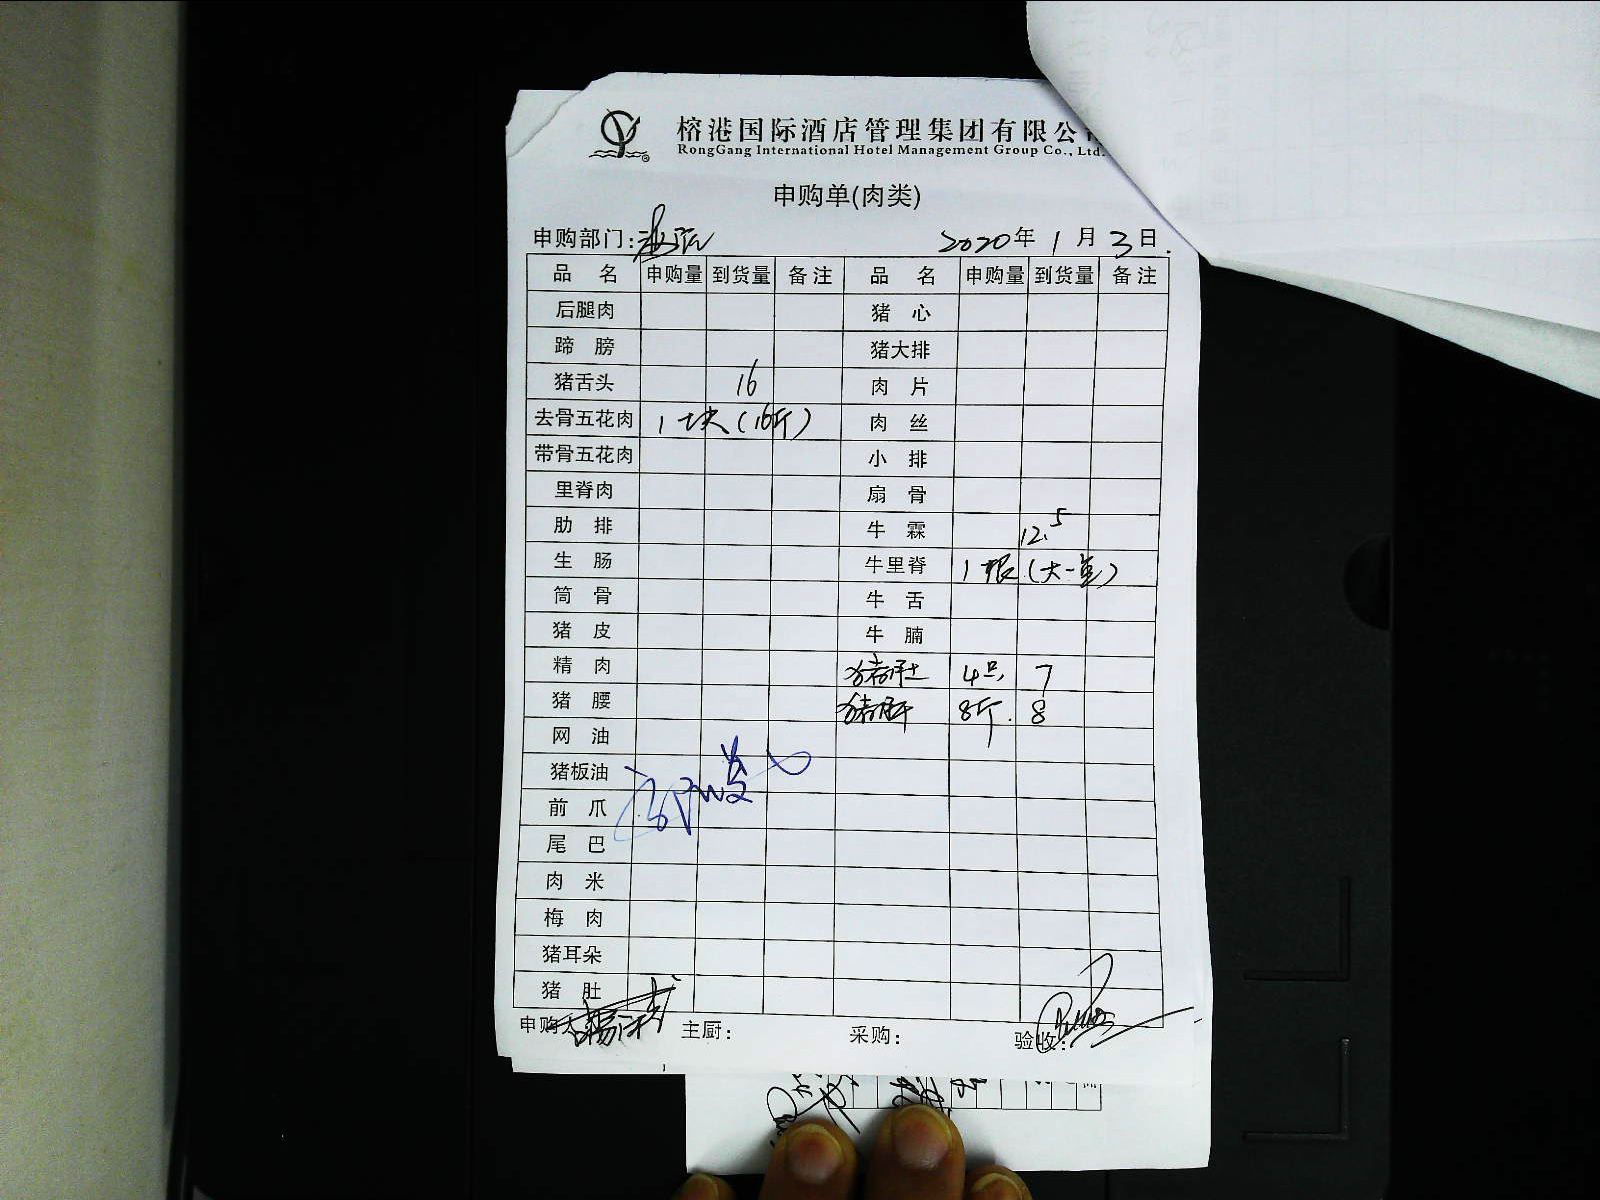 榕港国际酒店管理集团有限公
RongGang International Hotel Management Group Co., Ltd.
申购单(肉类)
申购部门: 2020年 1 月 3 日.
品 名 申购量 到货量 备注 品 名 申购量 到货量 备注
后腿肉 猪 心
蹄 膀 猪大排
猪舌头 16 肉 片
去骨五花肉 1 块(16斤) 肉 丝
带骨五花肉 小 排
里脊肉 扇 骨
肋 排 牛 霖 12.5
生 肠 牛里脊 1 根(大一点)
筒 骨 牛 舌
猪 皮 牛 腩
精 肉 猪肚 4只 7
猪 腰 猪肝 8斤. 8
网 油
猪板油
前 爪
尾 巴
肉 米
梅 肉
猪耳朵
猪 肚
申购人 主厨: 采购: 验收: